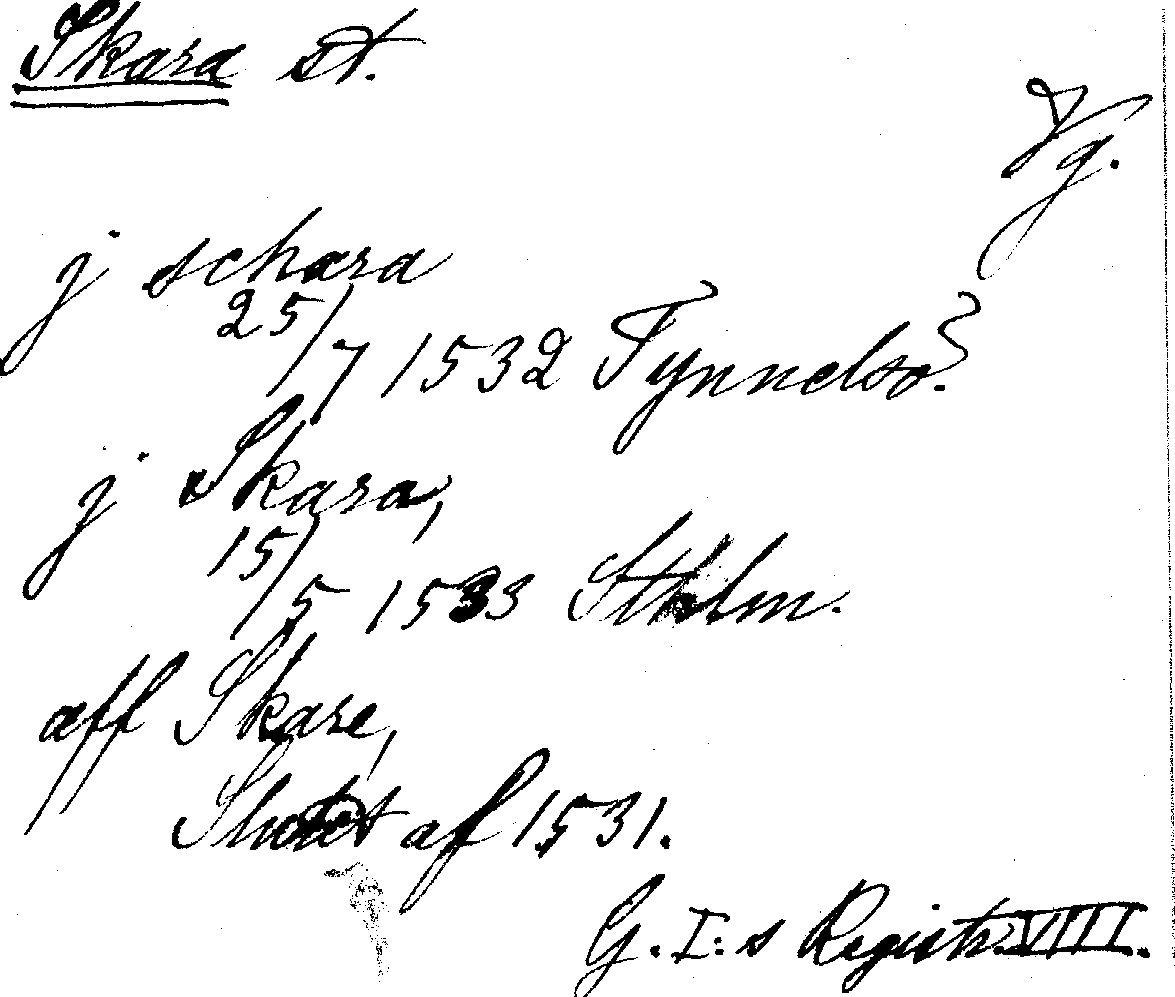 Skara st.
Vg.
j schara
25/7 1532 Tynnelsö.
j Skara,
15/5 1533 Sthlm.
aff Skare,
Slutet af 1531.
G. I:s Registr. VIII.